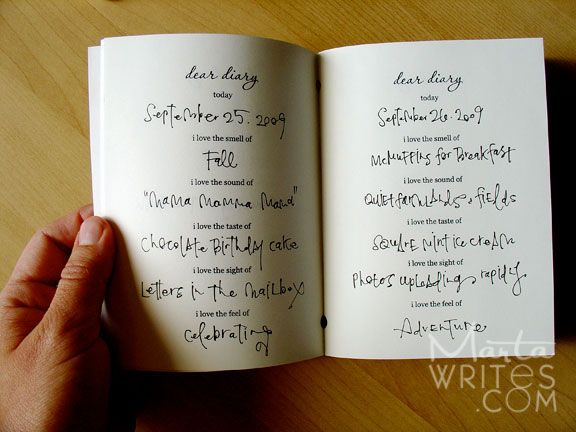 dear diary
today
September 25. 2009
i love the smell of
Fall
i love the sound of
"Mama Mamma Mama"
i love the taste of
Chocolate Birthday cake
i love the sight of
Letters in the mailbox
i love the feel of
celebrating
dear diary
today
September 26. 2009
i love the smell of
McMuffins for Breakfast
i love the sound of
Quiet farmlands & fields
i love the taste of
square mint ice cream
i love the sight of
Photos uploading rapidly
i love the feel of
Adventure
Marta
WRITES
.COM